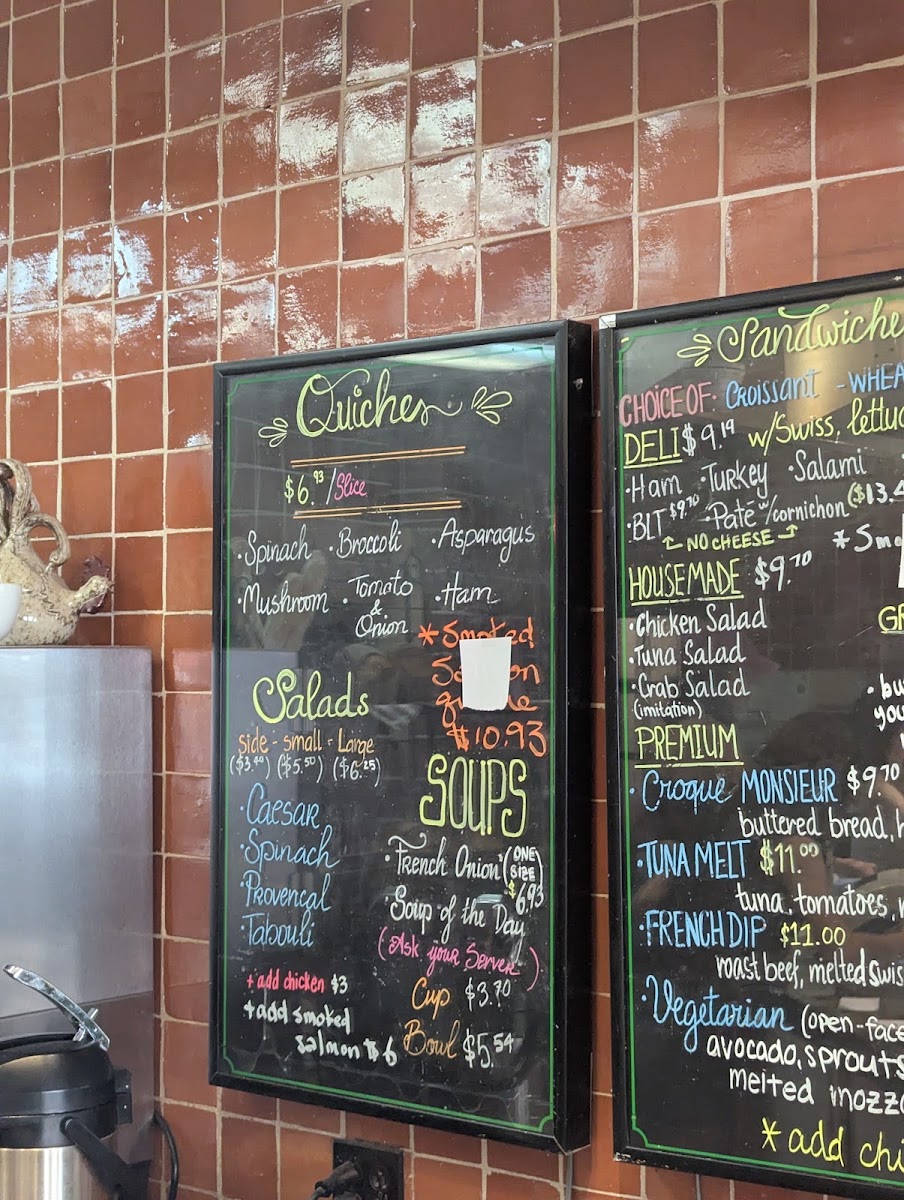 Quiches
$6.93/Slice
·Spinach ·Broccoli ·Asparagus
·Mushroom ·Tomato & Onion ·Ham
*Smoked
$10.93
Salads
side - small - Large
($3.40) ($5.50) ($6.25)
·Caesar
·Spinach
·Provencal
·Tabouli
+ add chicken $3
+ add smoked
salmon $6
SOUPS
·French Onion (ONE SIZE) $6.93
·Soup of the Day
(Ask your Server)
Cup $3.70
Bowl $5.54
CHOICE OF· Croissant -
DELI $9.19 w/Swiss,
·Ham ·Turkey ·Salami
·BLT $9.70 ·Paté w/cornichon
NO CHEESE
HOUSEMADE $9.70
·Chicken Salad
·Tuna Salad
·Crab Salad
(imitation)
PREMIUM
·Croque MONSIEUR $9.70
buttered bread,
·TUNA MELT $11.00
tuna, tomatoes,
·FRENCH DIP $11.00
roast beef, melted
·Vegetarian
avocado, sprouts
melted
* add